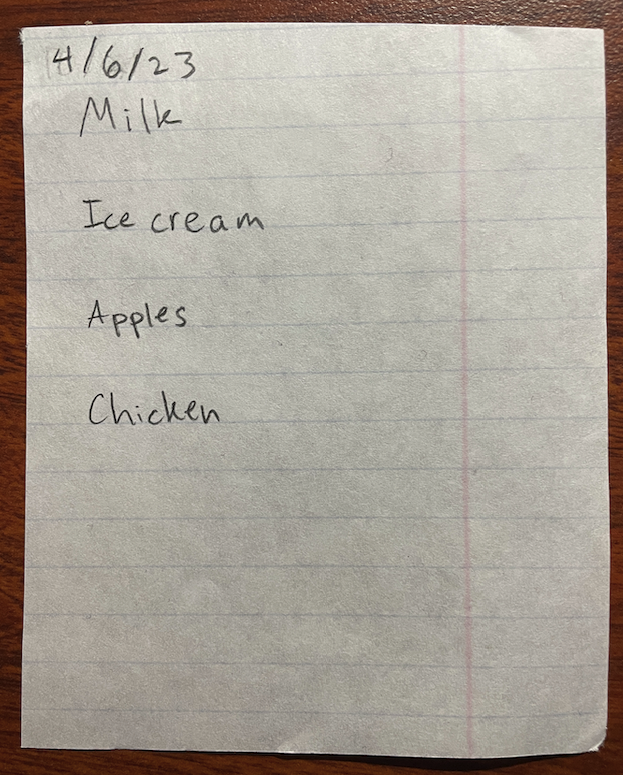 4/6/23
Milk
Ice cream
Apples
Chicken